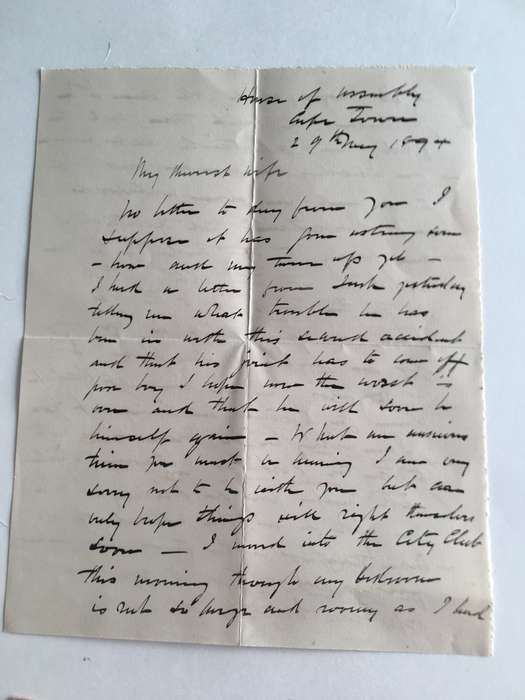 House of Assembly
Cape Town
29th May 1894
My dearest wife
No letter to day from you I
suppose it has gone astray some
- how and may turn up yet -
I had a letter from Jack yesterday
telling me what trouble he has
been in with this second accident
and that his joint has to come off
poor boy I hope now the worst is
over and that he will soon be
himself again - What an anxious
time you must be having I am very
sorry not to be with you but can
only hope things will right themselves
soon - I moved into the City Club
this morning though my bedroom
is not so large and roomy as I had